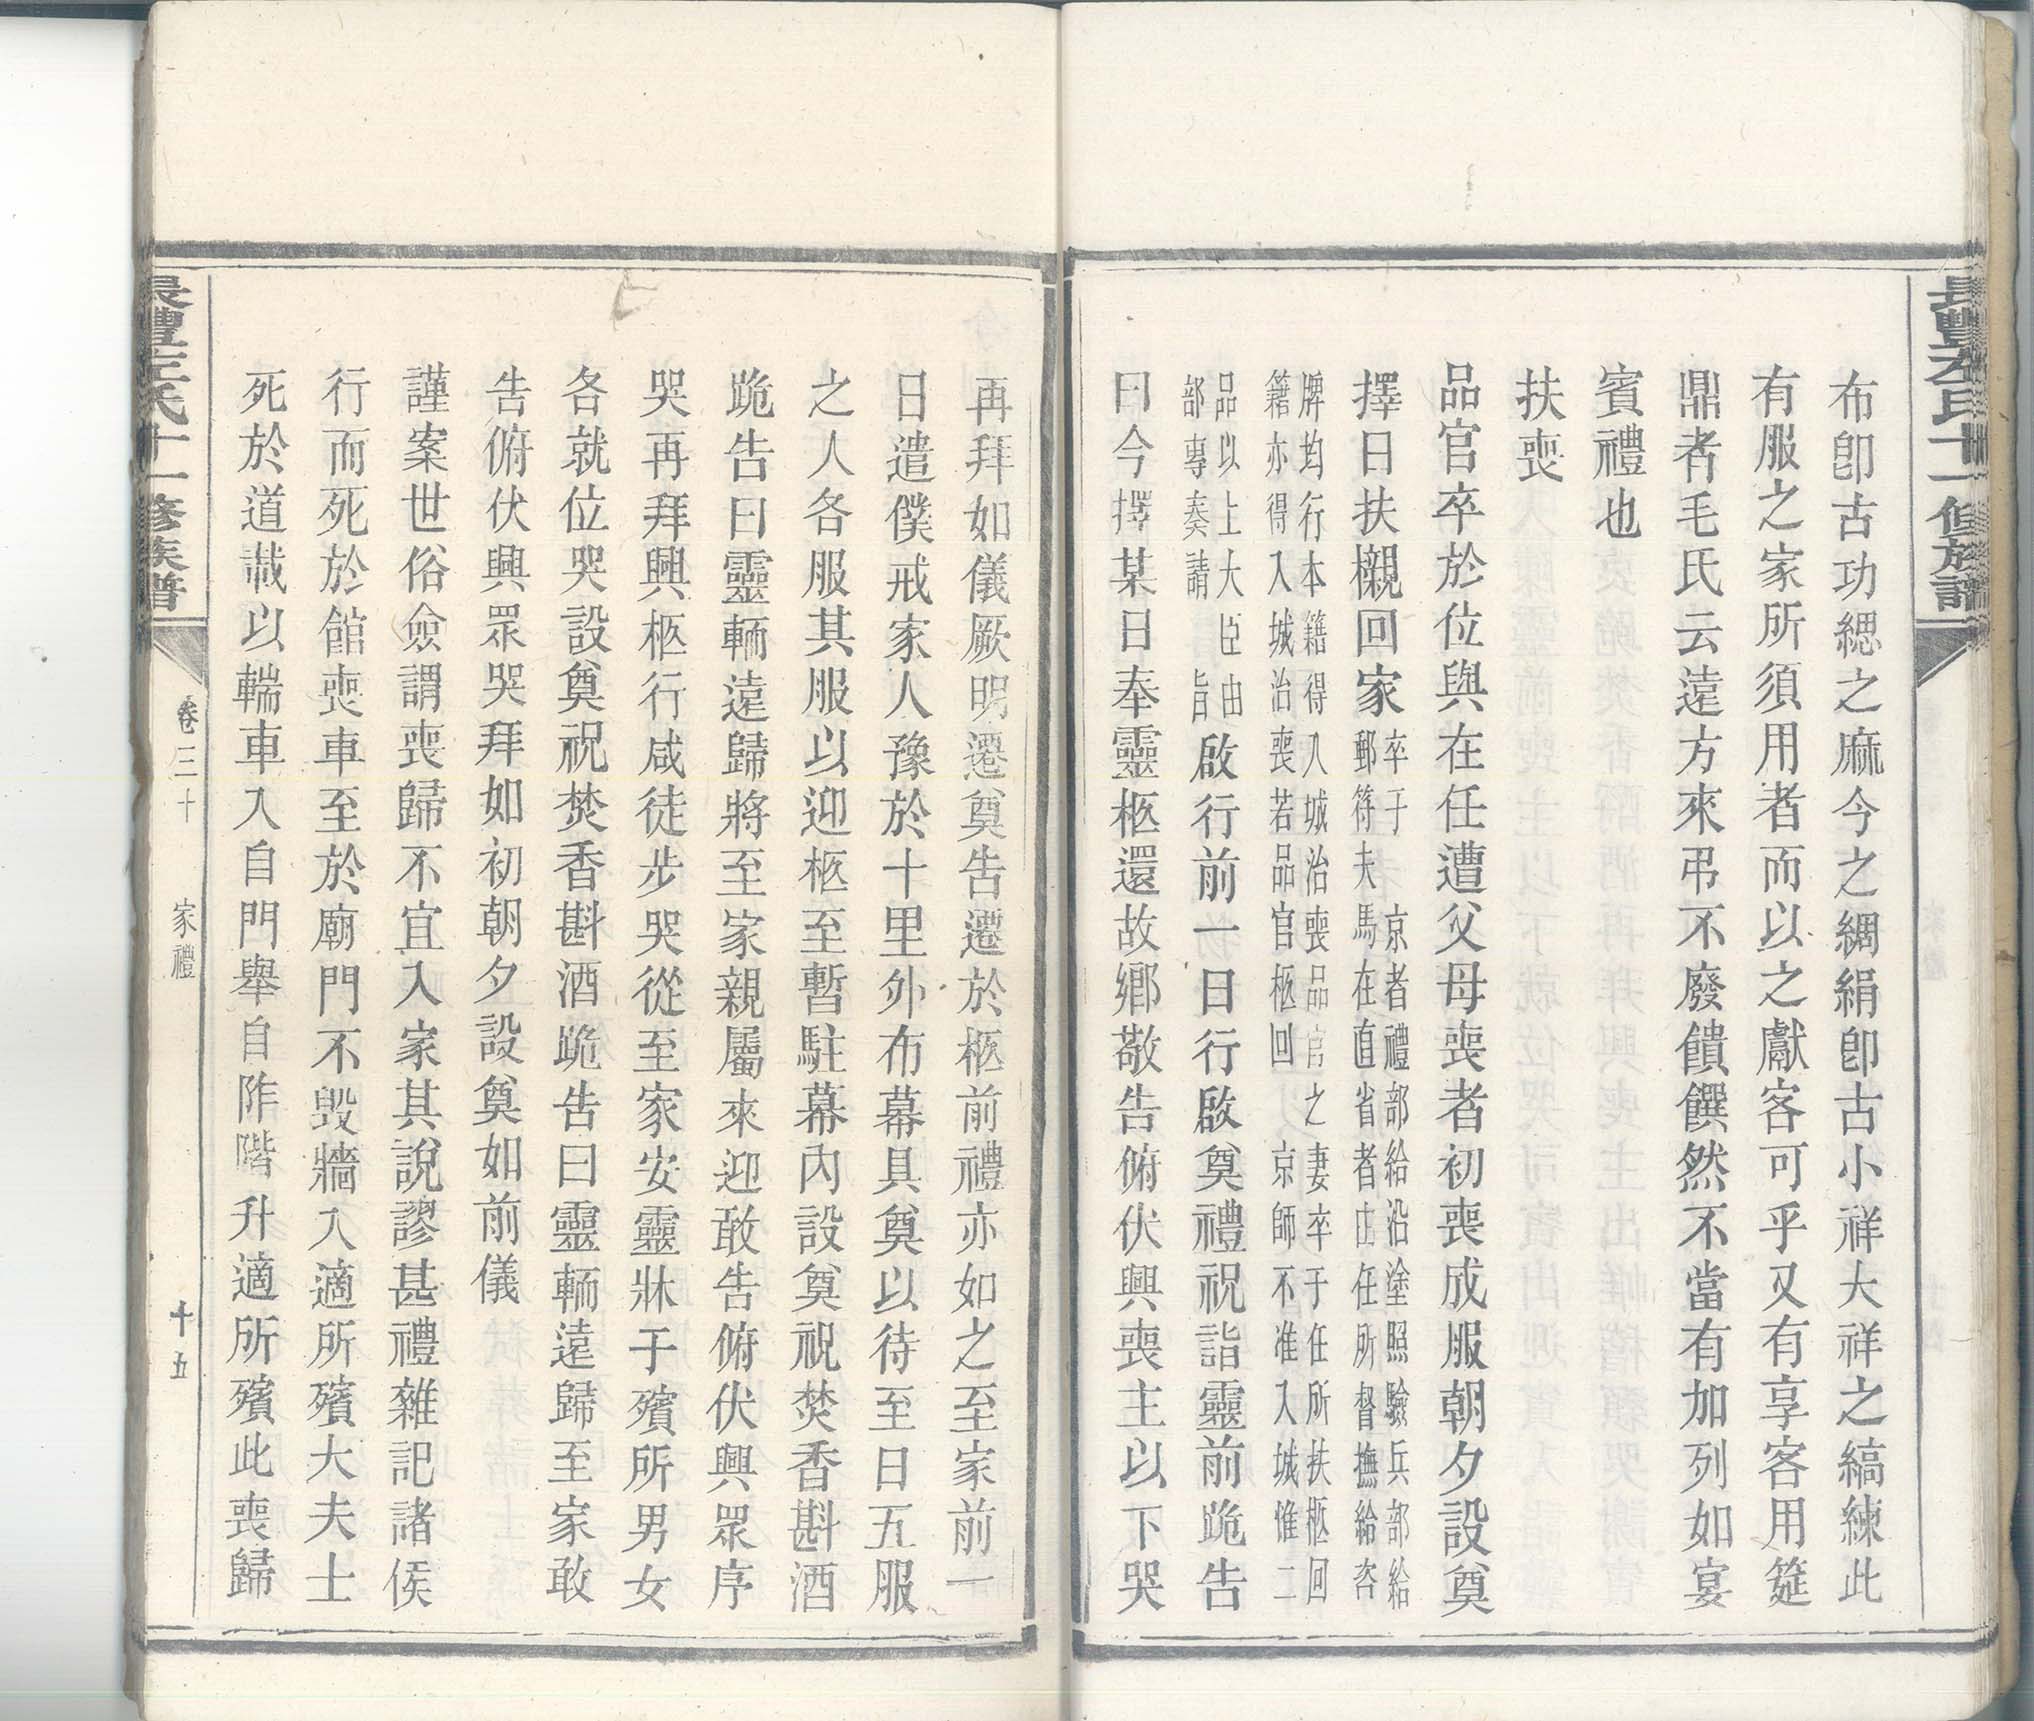 長豐左氏十一修族譜
布卽古功緦之麻今之綢絹卽古小祥大祥之縞練此
有服之家所須用者而以之獻客可乎又有享客用筵
鼎者毛氏云遠方來弔不廢饋饌然不當有加列如宴
賓禮也
扶喪
品官卒於位與在任遭父母喪者初喪成服朝夕設奠
擇日扶櫬回家
卒于 京者禮部給沿塗照驗兵部給
郵符夫馬在直省者由任所督撫給咨
牌均行本籍得入城治喪品官之妻卒于任所扶柩回
籍亦得入城治喪若品官柩回 京師不准入城惟二
品以上大臣由
部專奏請 旨
啟行前一日行啟奠禮祝詣靈前跪告
曰今擇某日奉靈柩還故鄉敬告俯伏興喪主以下哭
再拜如儀厥明遷奠告遷於柩前禮亦如之至家前一
日遣僕戒家人豫於十里外布幕具奠以待至日五服
之人各服其服以迎柩至暫駐幕內設奠祝焚香斟酒
跪告曰靈輀遠歸將至家親屬來迎敢告俯伏興眾序
哭再拜興柩行咸徒步哭從至家安靈牀于殯所男女
各就位哭設奠祝焚香斟酒跪告曰靈輀遠歸至家敢
告俯伏興眾哭拜如初朝夕設奠如前儀
謹案世俗僉謂喪歸不宜入家其說謬甚禮雜記諸侯
行而死於館喪車至於廟門不毀牆入適所殯大夫士
死於道載以輲車入自門舉自阼階升適所殯此喪歸
長豐左氏十一修族譜
卷三十 家禮 十五